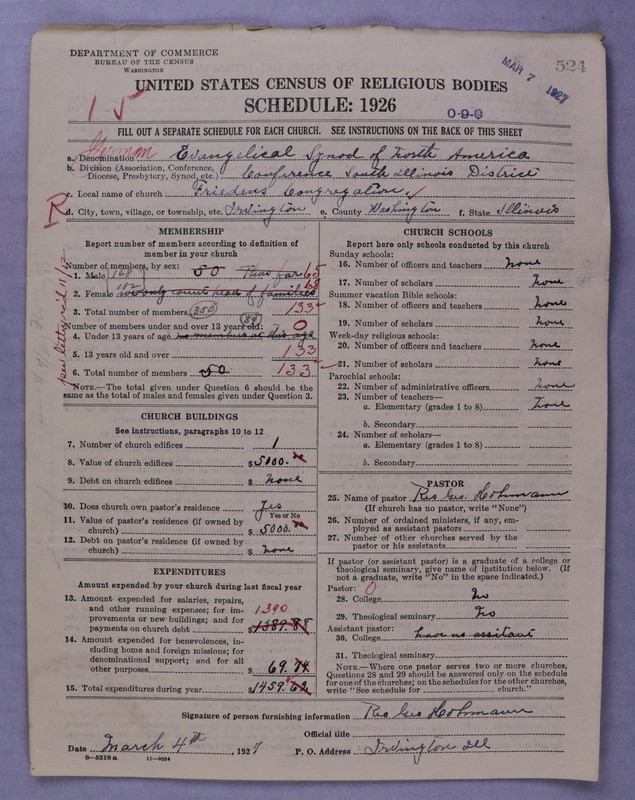 DEPARTMENT OF COMMERCE
BUREAU OF THE CENSUS
WASHINGTON
MAR 7 1927
524
UNITED STATES CENSUS OF RELIGIOUS BODIES
SCHEDULE: 1926
0-9-0
FILL OUT A SEPARATE SCHEDULE FOR EACH CHURCH. SEE INSTRUCTIONS ON THE BACK OF THIS SHEET
a. Denomination German Evangelical Synod of North America
b. Division (Association, Conference, Diocese, Presbytery, Synod, etc.) Conference South Illinois District
c. Local name of church Friedens Congregation
R
d. City, town, village, or township, etc. Irvington e. County Washington f. State Illinois
MEMBERSHIP
Report number of members according to definition of
member in your church
Number of members, by sex: 50 Thus far
1. Male 168 65
2. Female 182 only count head of families 68
3. Total number of members 350 133
Number of members under and over 13 years old:
4. Under 13 years of age no members at this age 0
5. 13 years old and over 133
6. Total number of members 50 133
NOTE.—The total given under Question 6 should be the
same as the total of males and females given under Question 3.
per letter rec'd 11/12
CHURCH BUILDINGS
See instructions, paragraphs 10 to 12
7. Number of church edifices 1
8. Value of church edifices $5000.
9. Debt on church edifices $ None
10. Does church own pastor's residence Yes
Yes or No
11. Value of pastor's residence (if owned by
church) $5000.
12. Debt on pastor's residence (if owned by
church) $ None
EXPENDITURES
Amount expended by your church during last fiscal year
13. Amount expended for salaries, repairs,
and other running expenses; for improvements
or new buildings; and for 1390
payments on church debt $1389.88
14. Amount expended for benevolences, including
home and foreign missions; for
denominational support; and for all
other purposes $ 69.74
15. Total expenditures during year $1459.62
CHURCH SCHOOLS
Report here only schools conducted by this church
Sunday schools:
16. Number of officers and teachers None
17. Number of scholars None
Summer vacation Bible schools:
18. Number of officers and teachers None
19. Number of scholars None
Week-day religious schools:
20. Number of officers and teachers None
21. Number of scholars None
Parochial schools:
22. Number of administrative officers None
23. Number of teachers—
a. Elementary (grades 1 to 8) None
b. Secondary
24. Number of scholars—
a. Elementary (grades 1 to 8)
b. Secondary
PASTOR
25. Name of pastor Rev Geo. Hohmann
(If church has no pastor, write "None")
26. Number of ordained ministers, if any, employed
as assistant pastors
27. Number of other churches served by the
pastor or his assistants
If pastor (or assistant pastor) is a graduate of a college or
theological seminary, give name of institution below. (If
not a graduate, write "No" in the space indicated.)
Pastor: 0
28. College No
29. Theological seminary No
Assistant pastor:
30. College have no assitant
31. Theological seminary
NOTE.—Where one pastor serves two or more churches,
Questions 28 and 29 should be answered only on the schedule
for one of the churches; on the schedules for the other churches,
write "See schedule for church."
Signature of person furnishing information Rev Geo Hohmann
Official title
Date March 4th, 1927 P. O. Address Irvington Ill
8—5518 a 11—9054